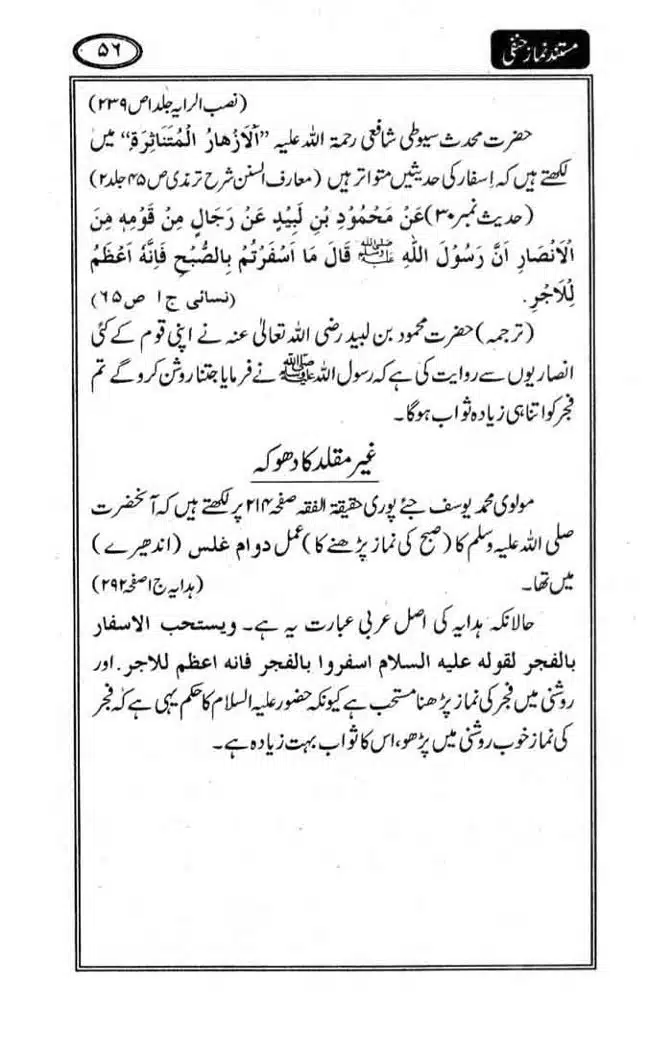 مستند نماز حنفی
۵۶
(نصب الرایہ جلد۱ص۲۳۹)
حضرت محدث سیوطی شافعی رحمۃ اللہ علیہ ”اَلْاَزْهَارُ الْمُتَنَاثِرَةِ“ میں
لکھتے ہیں کہ اِسفار کی حدیثیں متواتر ہیں (معارف السنن شرح ترمذی ص۴۵ جلد۲)
(حدیث نمبر ۳۰) عَنْ مَحْمُوْدِ بْنِ لَبِیْدٍ عَنْ رِجَالٍ مِنْ قَوْمِهٖ مِنَ
الْاَنْصَارِ اَنَّ رَسُوْلَ اللّٰهِ ﷺ قَالَ مَا اَسْفَرْتُمْ بِالصُّبْحِ فَاِنَّهٗ اَعْظَمُ
لِلْاَجْرِ. (نسائی ج۱ ص۶۵)
(ترجمہ) حضرت محمود بن لبید رضی اللہ تعالیٰ عنہ نے اپنی قوم کے کئی
انصاریوں سے روایت کی ہے کہ رسول اللہ ﷺ نے فرمایا جتنا روشن کرو گے تم
فجر کو اتنا ہی زیادہ ثواب ہوگا۔
غیر مقلد کا دھوکہ
مولوی محمد یوسف جئے پوری حقیقۃ الفقہ صفحہ ۲۱۴ پر لکھتے ہیں کہ آنحضرت
صلی اللہ علیہ وسلم کا (صبح کی نماز پڑھنے کا) عمل دوام غلس (اندھیرے)
میں تھا۔ (ہدایہ ج۱صفحہ۲۹۲)
حالانکہ ہدایہ کی اصل عربی عبارت یہ ہے۔ ویستحب الاسفار
بالفجر لقوله علیه السلام اسفروا بالفجر فانه اعظم للاجر. اور
روشنی میں فجر کی نماز پڑھنا مستحب ہے کیونکہ حضور علیہ السلام کا حکم یہی ہے کہ فجر
کی نماز خوب روشنی میں پڑھو، اس کا ثواب بہت زیادہ ہے۔